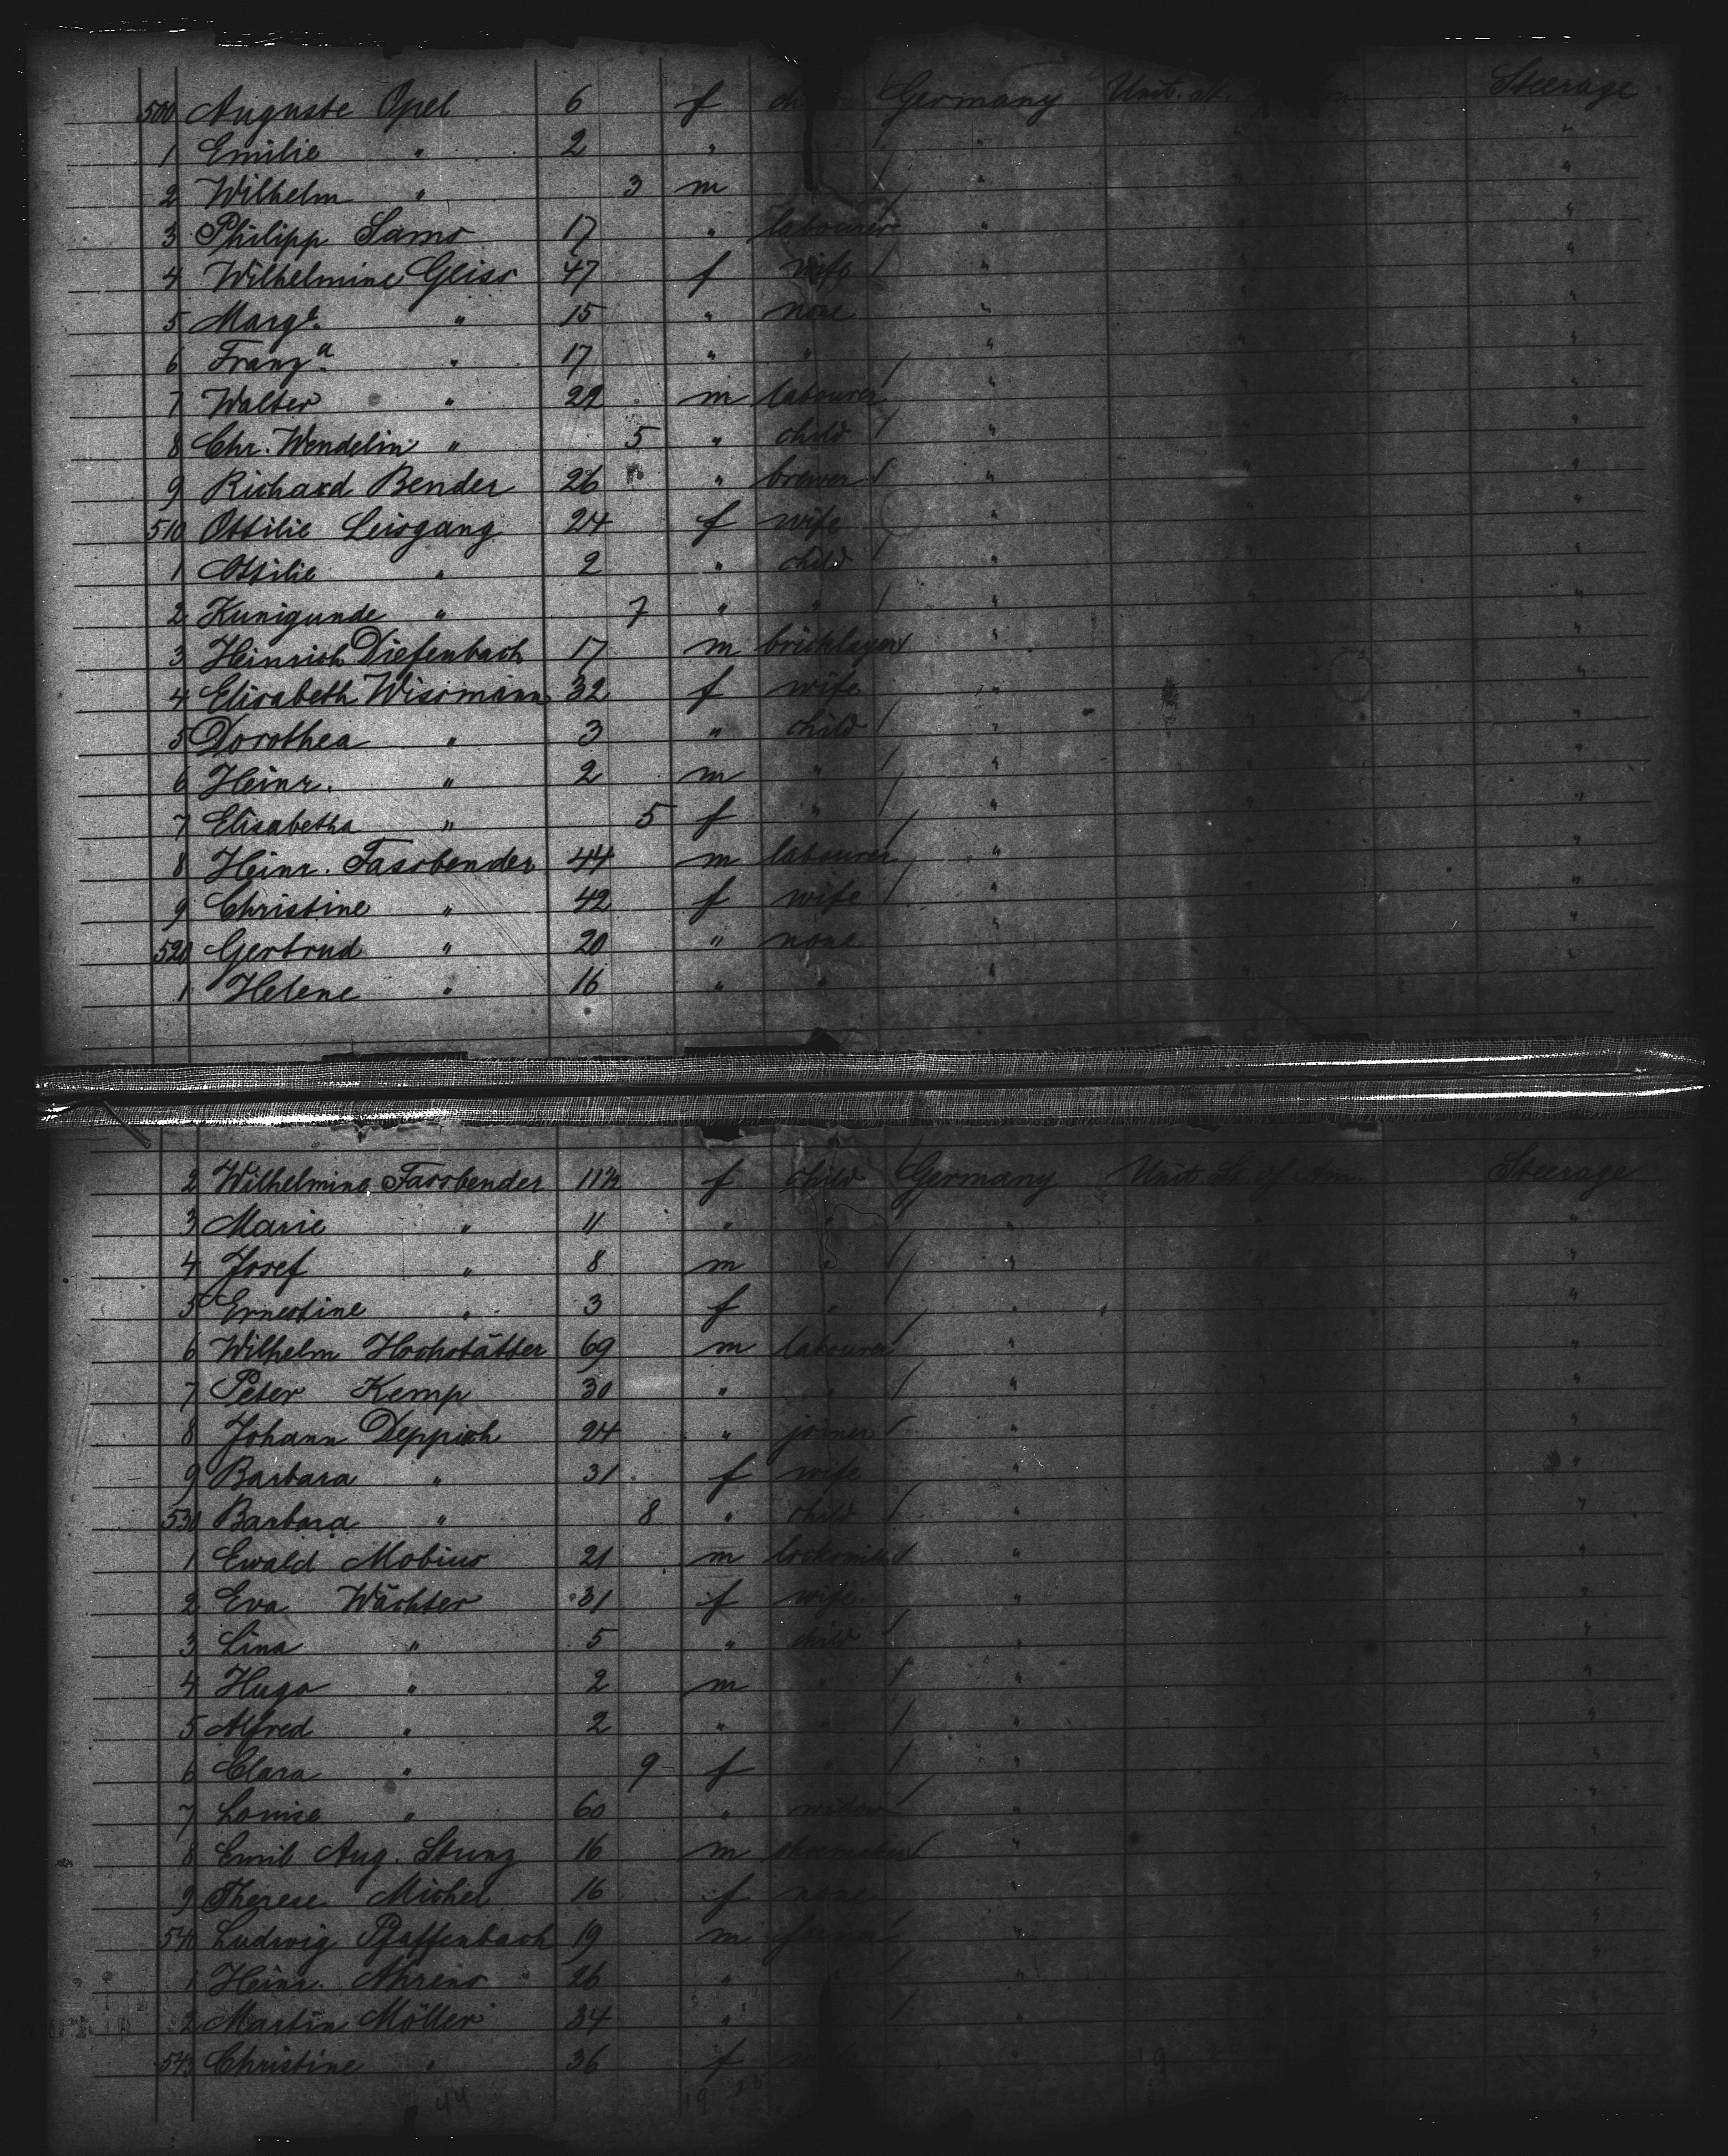 500 Auguste Opel 6 f Germany Unit. st. Steerage
1 Emilie " 2 " " " "
2 Wilhelm " 3 m " " "
3 Philipp Samo 17 " labourer " " "
4 Wilhelmine Gliss 47 f wife " " "
5 Marg.e " 15 " none " " "
6 Franz.a " 17 " " " " "
7 Walter " 22 m labourer " " "
8 Chr. Wendelin " 5 " child " " "
9 Richard Bender 26 " brewer " " "
510 Ottilie Leisgang 24 f wife " " "
1 Ottilie " 2 " child " " "
2 Kunigunde " 7 " " " " "
3 Heinrich Diefenbach 17 m bricklayer " " "
4 Elisabeth Wissmann 32 f wife " " "
5 Dorothea " 3 " child " " "
6 Heinr. " 2 m " " " "
7 Elisabetha " 5 f " " " "
8 Heinr. Fassbender 44 m labourer " " "
9 Christine " 42 f wife " " "
520 Gertrud " 20 " none " " "
1 Helene " 16 " " " " "
2 Wilhelmine Fassbender 11½ f child Germany Unit. St. of Am. Steerage
3 Marie " 11 " " " " "
4 Josef " 8 m " " " "
5 Ernestine " 3 f " " " "
6 Wilhelm Hochstätter 69 m labourer " " "
7 Peter Kemp 30 " " " " "
8 Johann Deppich 24 " joiner " " "
9 Barbara " 31 f wife " " "
530 Barbara " 8 " child " " "
1 Ewald Mobius 21 m locksmith " " "
2 Eva Wächter 31 f wife " " "
3 Lina " 5 " child " " "
4 Hugo " 2 m " " " "
5 Alfred " 2 " " " " "
6 Clara " 9 f " " " "
7 Louise " 60 " widow " " "
8 Emil Aug. Stunz 16 m shoemaker " " "
9 Therese Michel 16 f none " " "
540 Ludwig Pfaffenbach 19 m " " "
1 Heinr. Ahrens 26 " " " "
2 Martin Möller 34 " " " "
543 Christine " 36 f " " "
44 19 25